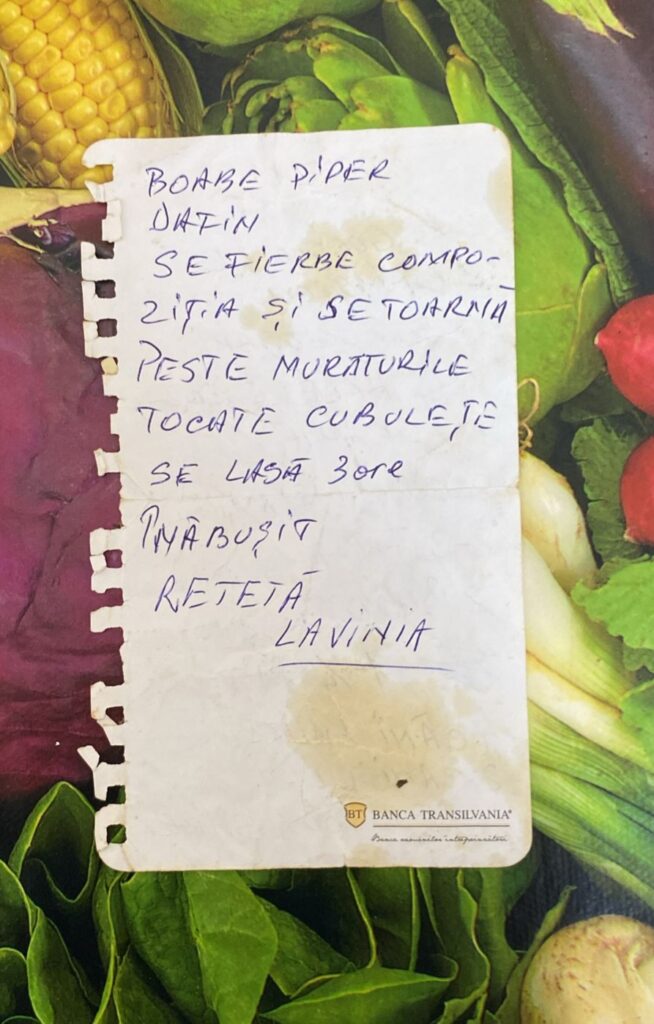 BOABE PIPER
DAFIN
SE FIERBE COMPO-
ZIȚIA ȘI SE TOARNĂ
PESTE MURATURILE
TOCATE CUBULEȚE
SE LASĂ 3 ore
ÎNĂBUȘIT
RETETĂ
LAVINIA
BT BANCA TRANSILVANIA®
Banca oamenilor întreprinzători